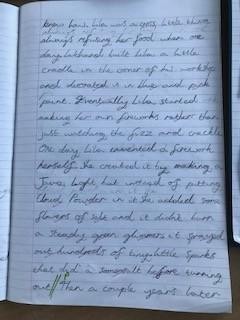 know how, Lila was a cross, little thing
always refusing her food when one
day Lalchand built Lila a little
cradle in the corner of his workshop
and decorated is in blue and pink
paint. Eventually Lila started
making her own fireworks rather than
just watching the fizz and crackle
One day Lila invented a firework
herself. She created it by making a
Java, Light but instead of putting
Cloud Powder in it she added some
flowers of salt and it didn't burn
a steady green glimmer it sprayed
out hundreds of tiny little sparks
that did a somersault before turning
out // Then a couple years later